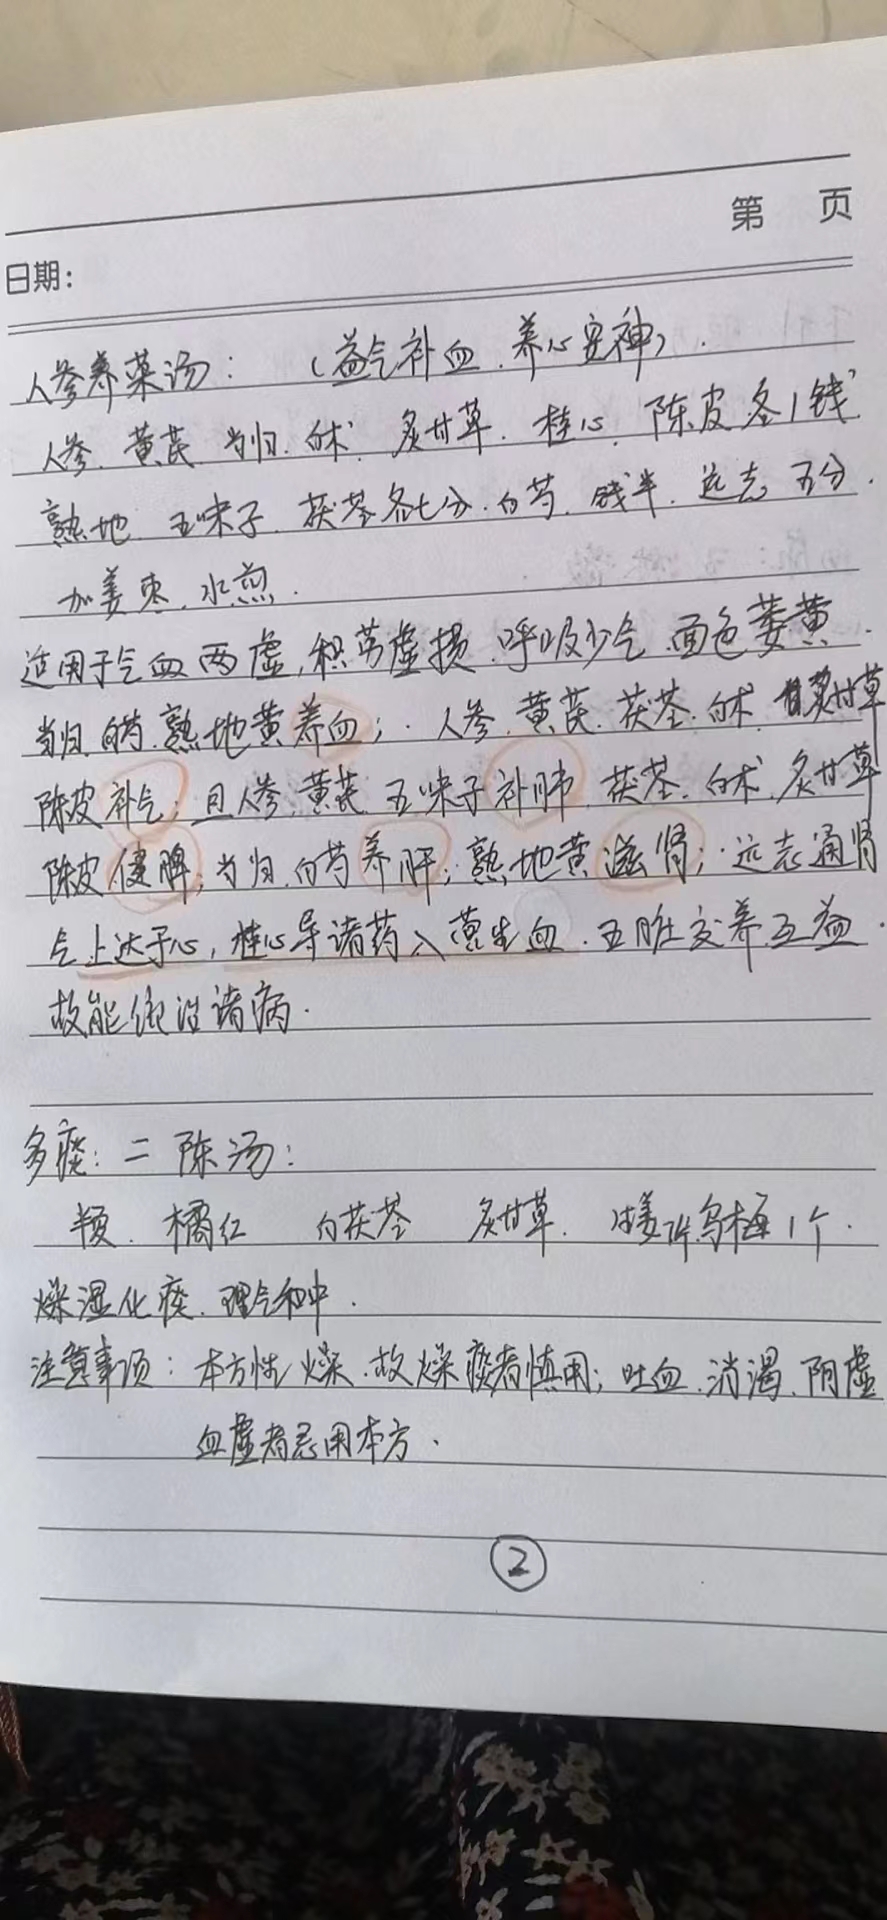 第 页
日期:
人参养荣汤: (益气补血.养心安神).
人参.黄芪.当归.白术.炙甘草.桂心.陈皮各1钱
熟地.五味子.茯苓各七分.白芍.钱半.远志五分.
加姜枣.水煎.
适用于气血两虚,积劳虚损.呼吸少气.面色萎黄.
当归.白芍.熟地黄养血;.人参.黄芪.茯苓.白术.炙甘草
陈皮补气;且人参.黄芪.五味子补肺.茯苓.白术.炙甘草
陈皮健脾;当归.白芍养肝;熟地黄滋肾;.远志通肾
气上达于心,桂心导诸药入营生血.五脏交养互益.
故能统治诸病.
多痰:二陈汤:
半夏.橘红 白茯苓 炙甘草.生姜7片.乌梅1个.
燥湿化痰.理气和中.
注意事项:本方性燥.故燥痰者慎用;吐血.消渴.阴虚
血虚者忌用本方.
②